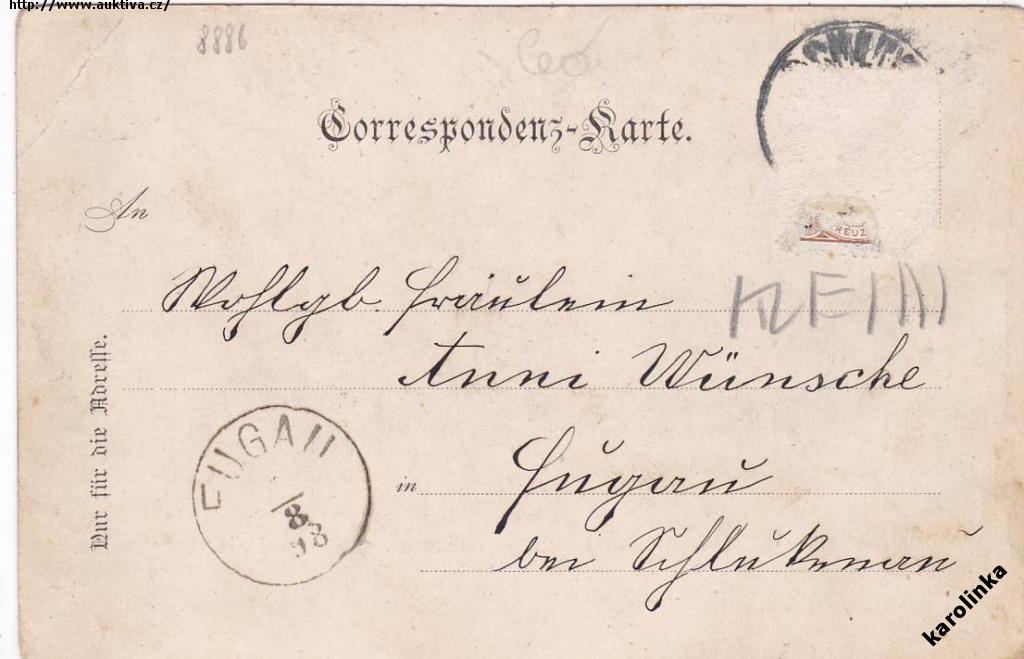 http://www.auktiva.cz/
8886
Correspondenz-Karte.
An
KREUZ
Wohlgb. Fräulein
KLEIN
Anni Wünsche
Nur für die Adresse.
FUGAU
8
98
in Fugau
bei Schlukenau
karolinka